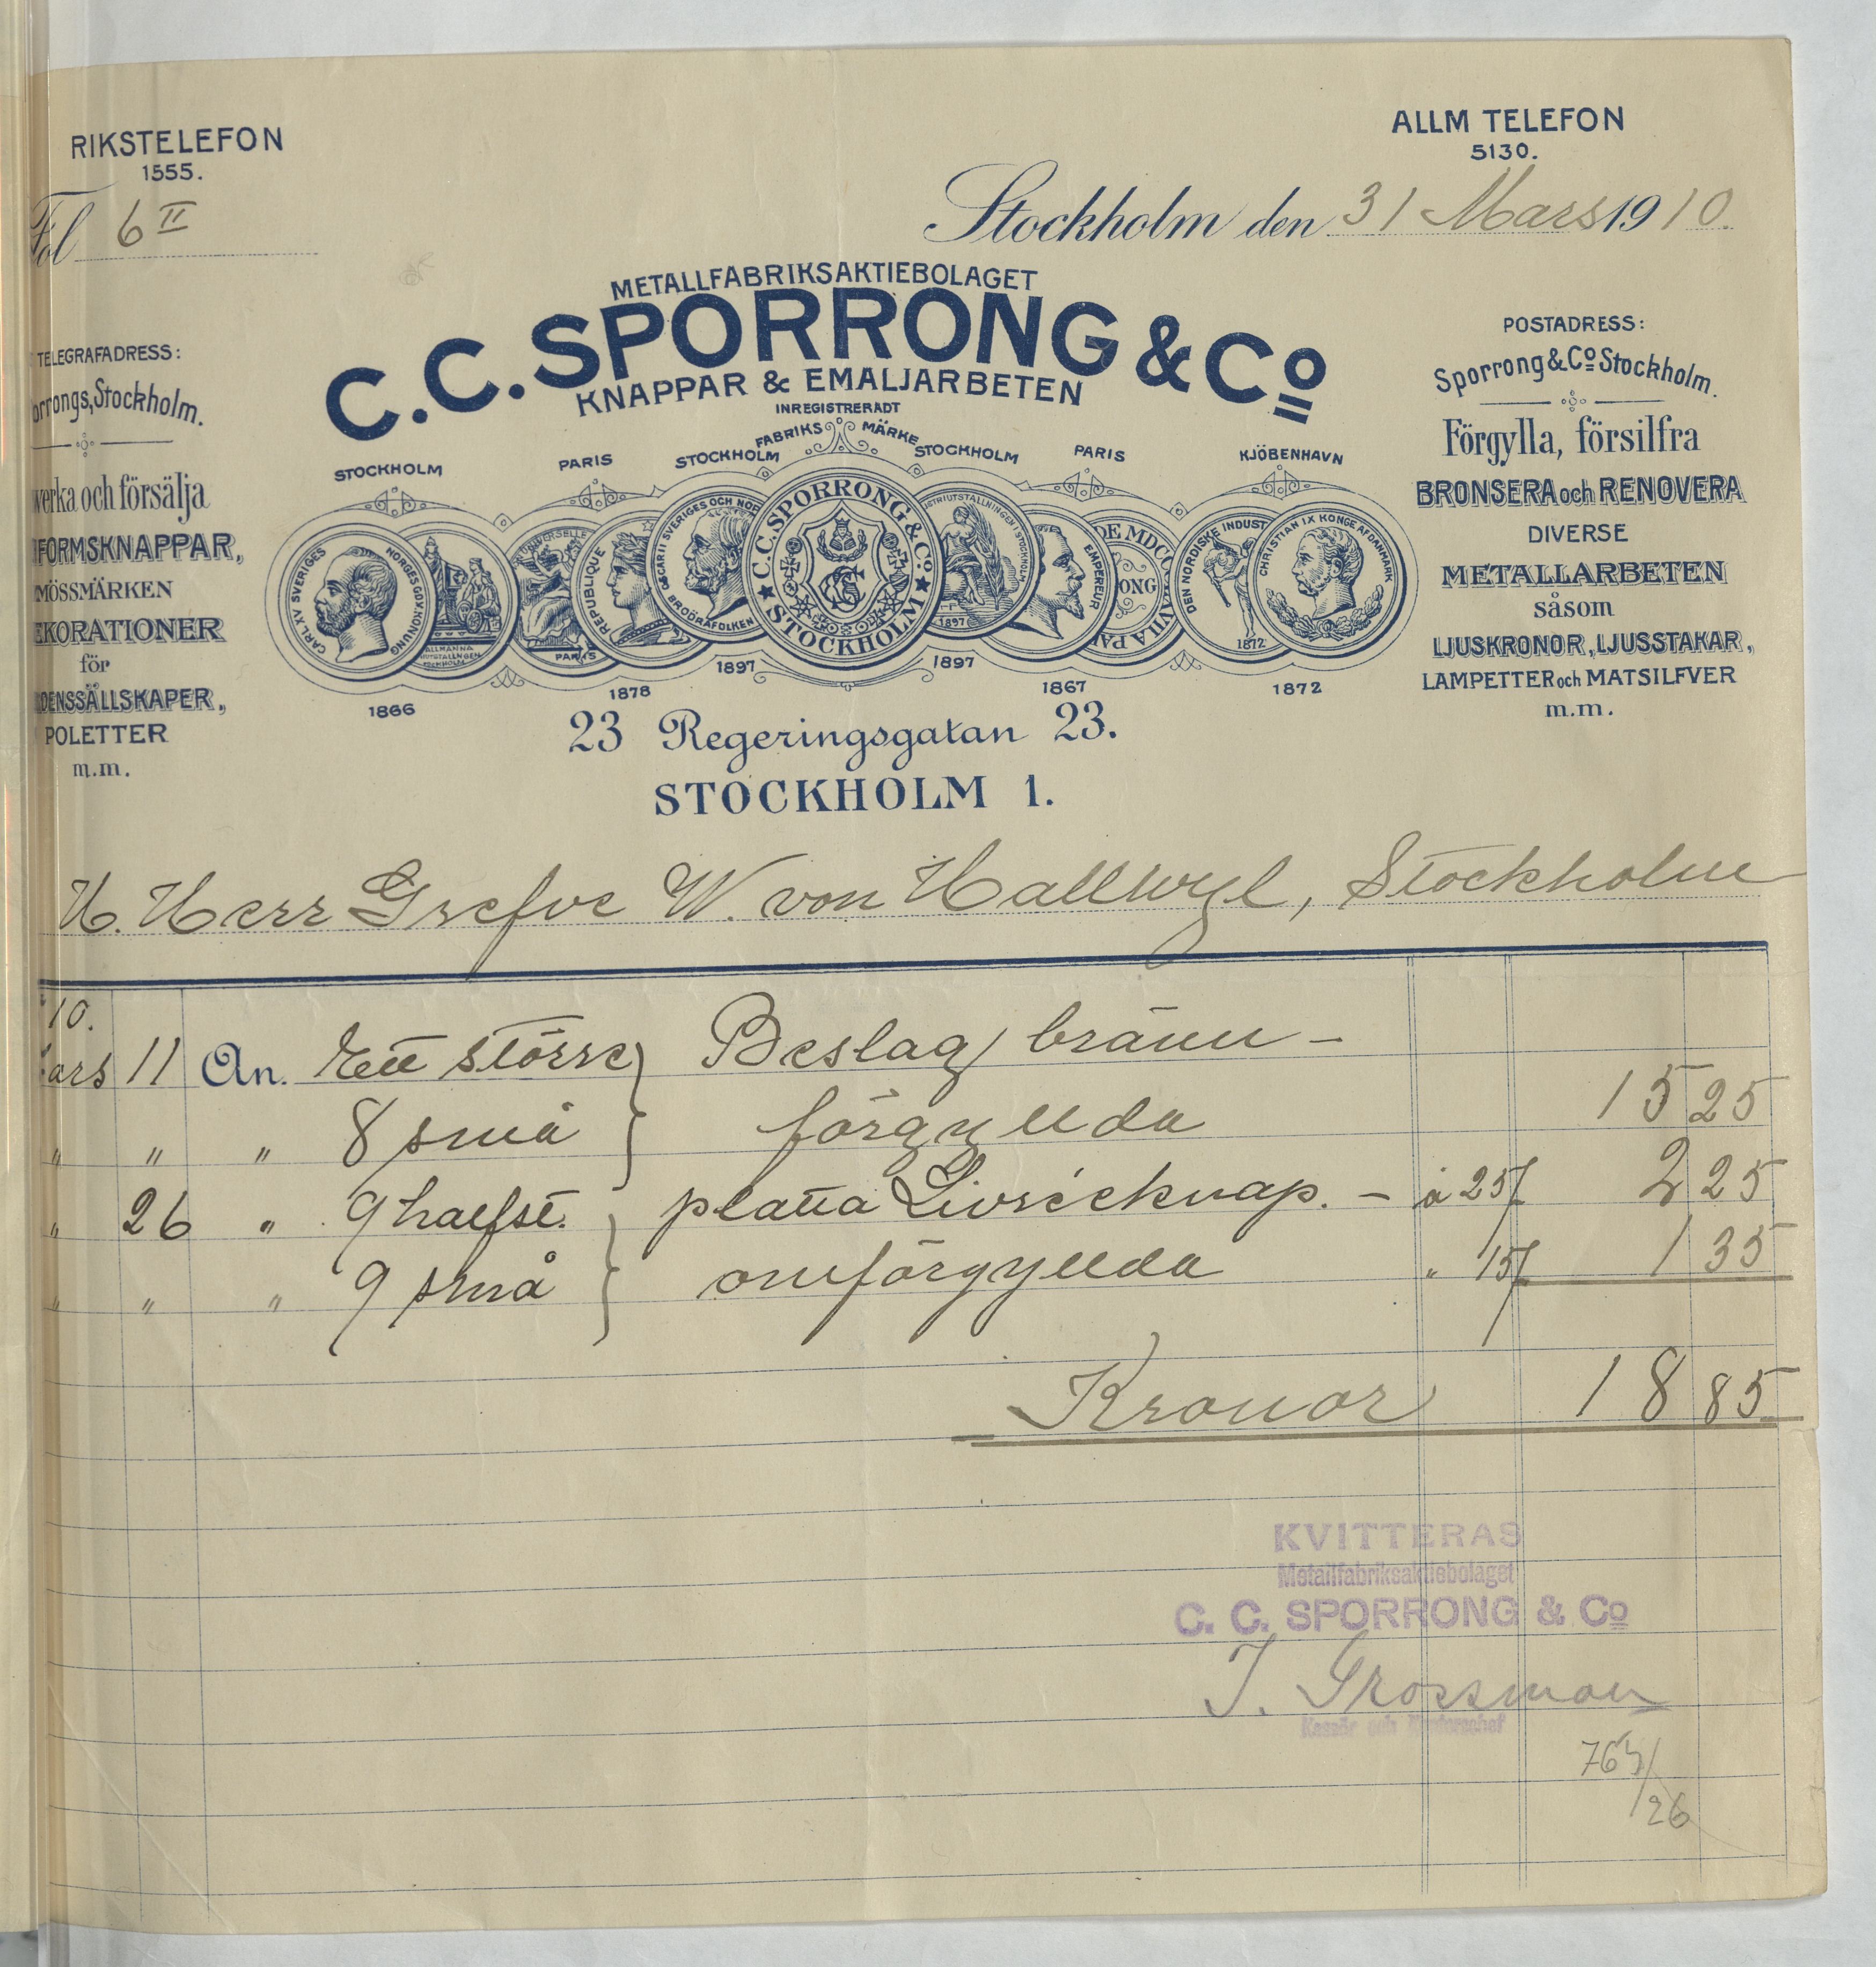 RIKSTELEFON
1555.
ALLM TELEFON
5130.
Fol 6 II
Stockholm den 31 Mars 1910.
METALLFABRIKSAKTIEBOLAGET
C.C. SPORRONG & Co
KNAPPAR & EMALJARBETEN
INREGISTRERADT
FABRIKS MÄRKE
TELEGRAFADRESS:
orrongs, Stockholm.
verka och försälja
FORMSKNAPPAR,
MÖSSMÄRKEN
EKORATIONER
för
DENSSÄLLSKAPER,
POLETTER
m.m.
POSTADRESS:
Sporrong & Co Stockholm.
Förgylla, försilfra
BRONSERA och RENOVERA
DIVERSE
METALLARBETEN
såsom
LJUSKRONOR, LJUSSTAKAR,
LAMPETTER och MATSILFVER
m.m.
STOCKHOLM PARIS STOCKHOLM STOCKHOLM PARIS KJÖBENHAVN
CARL XV SVERIGES NORGES GÖT. KONUNG
ALLMÄNNA
STOCKHOLM
UNIVERSELLE
PARIS
REPUBLIQUE
OSCAR II SVERIGES OCH NOR
BRÖDRAFOLKEN
C.C. SPORRONG & Co
STOCKHOLM
INDUSTRIUTSTÄLLNINGEN I STOCKHOLM
1897
EMPEREUR
DE MDCC
ONG
DEN NORDISKE INDUST
1872
CHRISTIAN IX KONGE AF DANMARK
1866 1878 1897 1897 1867 1872
23 Regeringsgatan 23.
STOCKHOLM 1.
H. Herr Grefve W. von Hallwyl, Stockholm
10.
ars 11 An. Ett större } Beslag bränn -
" " " 8 små } förgyllda 15 25
" 26 " 9 halfst. } platta Livréeknap. - à 25/ 2 25
" " " 9 små } omförgyllda " 15/ 1 35
Kronor 18 85
KVITTERAS
Metallfabriksaktiebolaget
C. C. SPORRONG & Co
J. Grossman
Kassör och Kontorschef
26